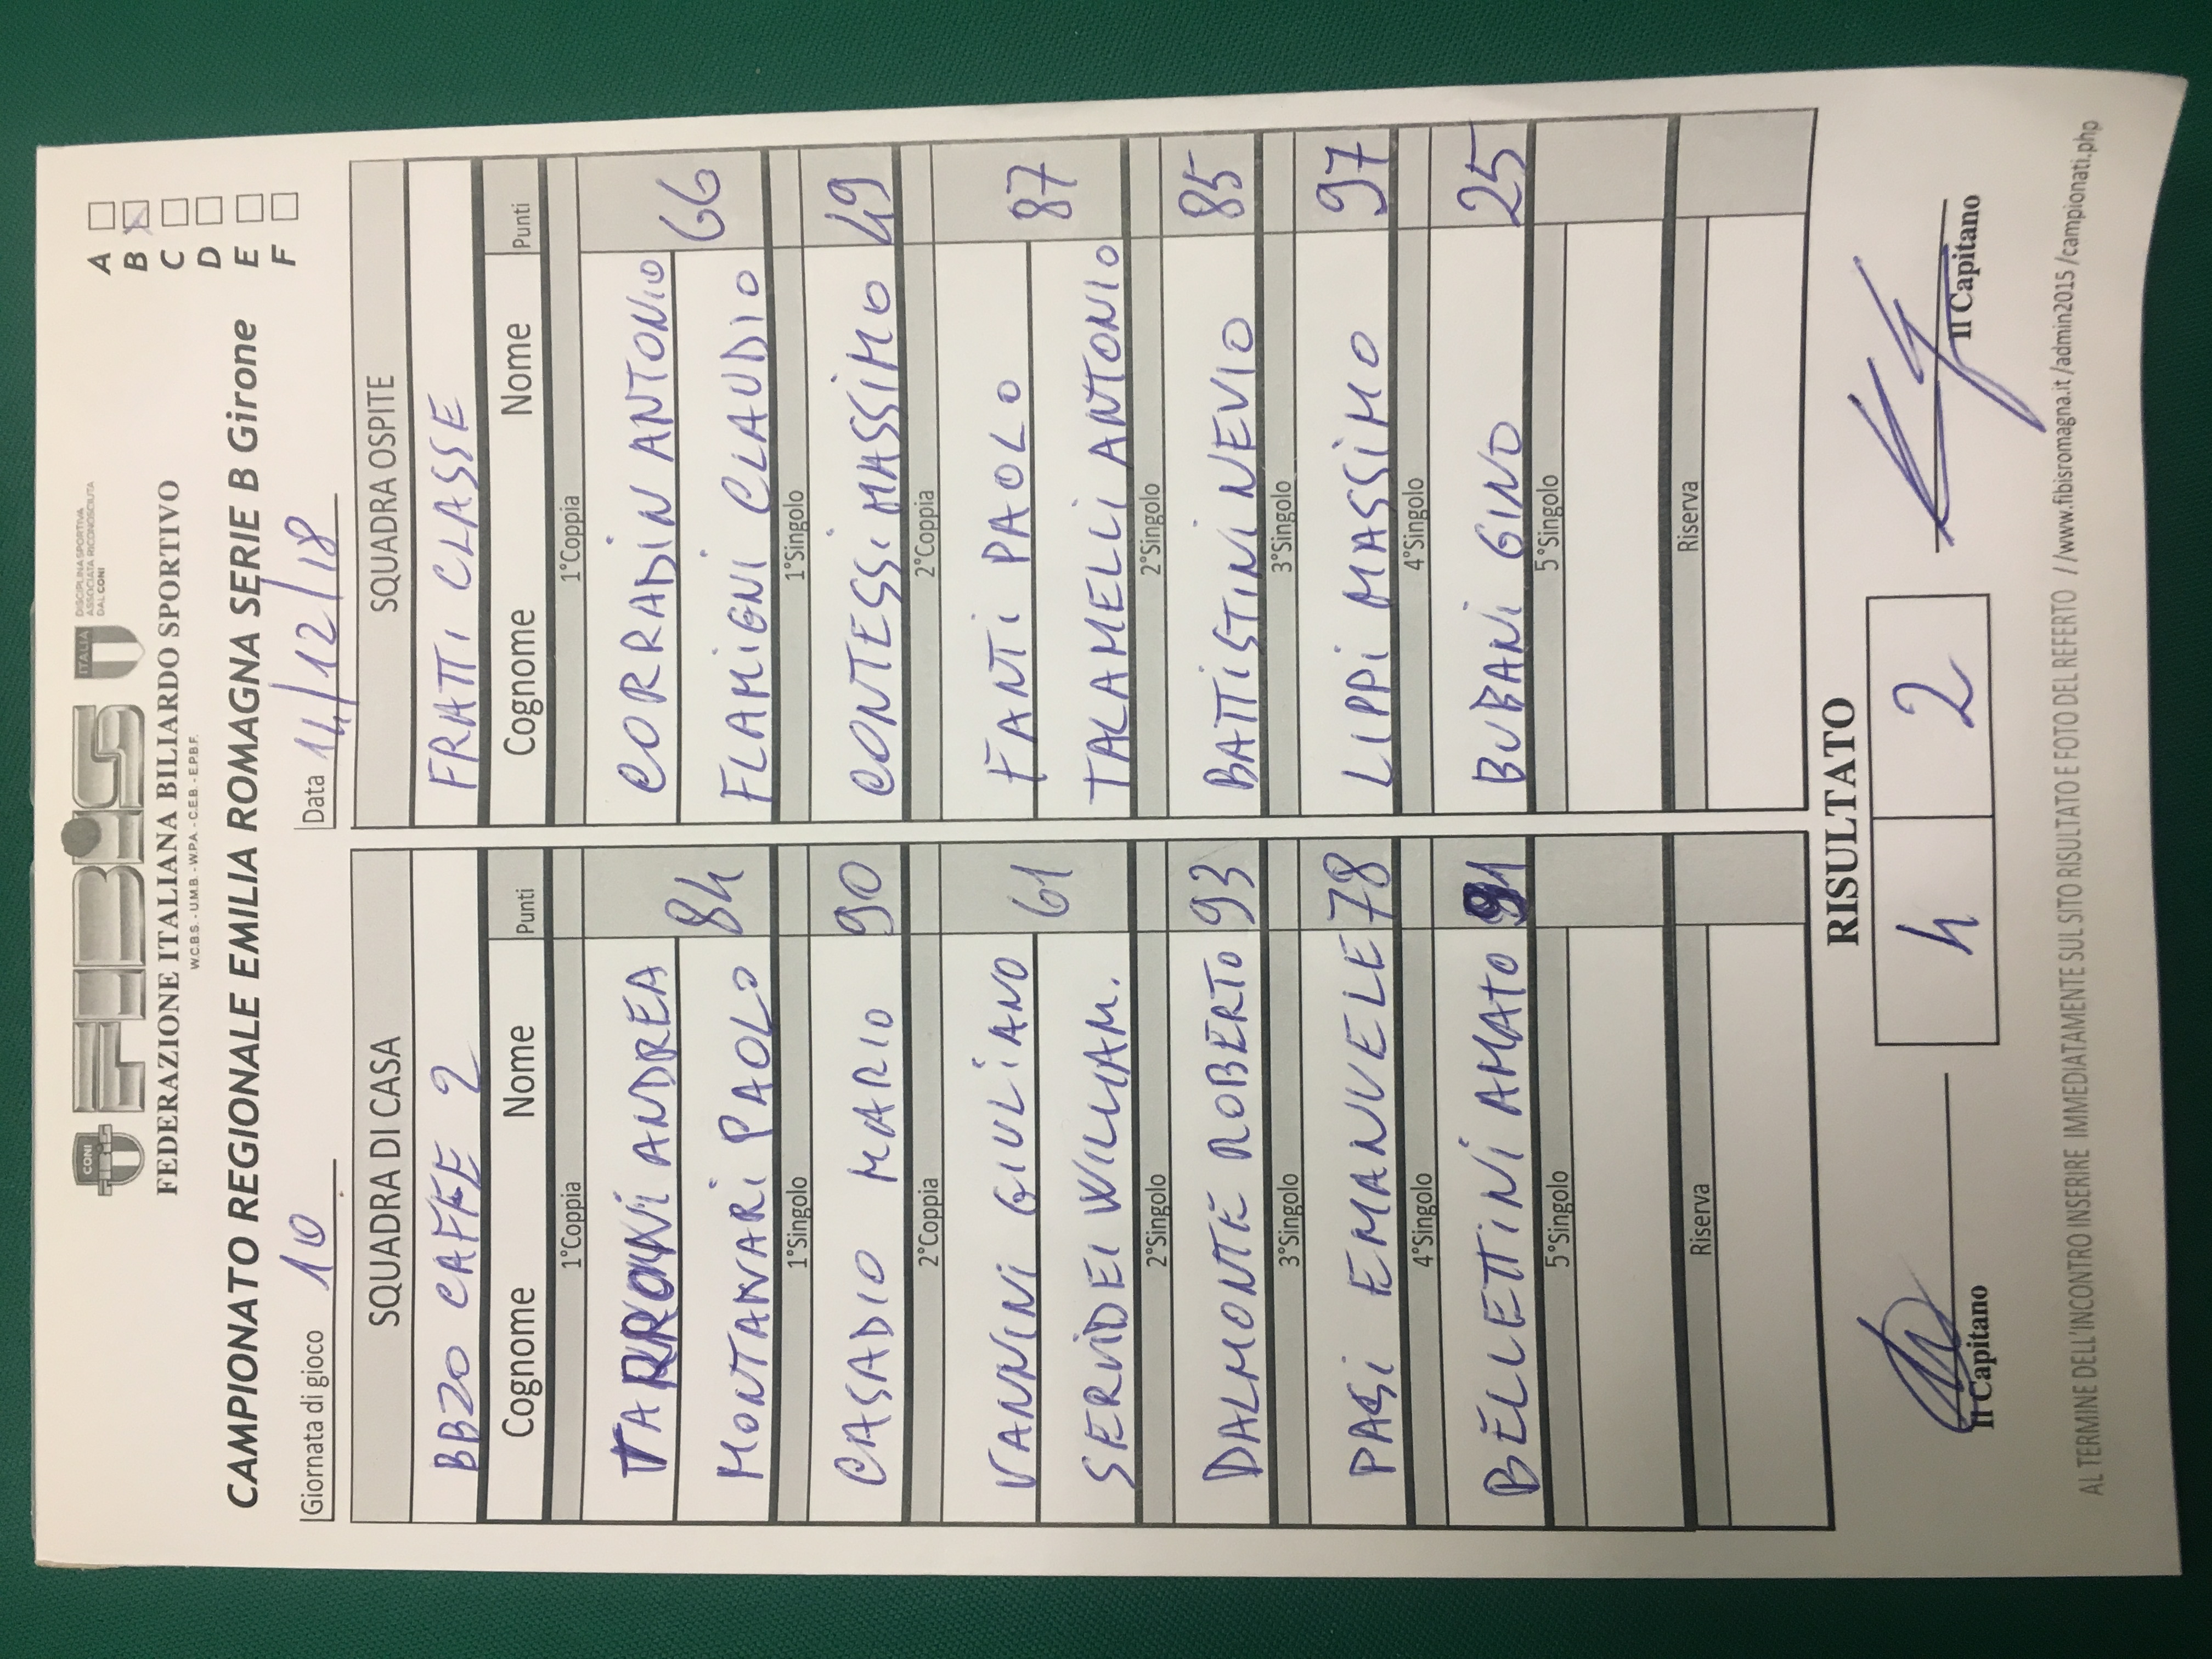 CONI
FIBiS
ITALIA
DISCIPLINA SPORTIVA
ASSOCIATA RICONOSCIUTA
DAL CONI
FEDERAZIONE ITALIANA BILIARDO SPORTIVO
W.C.B.S. - U.M.B. - W.P.A. - C.E.B. - E.P.B.F.
CAMPIONATO REGIONALE EMILIA ROMAGNA SERIE B Girone
A
B
C
D
E
F
Giornata di gioco 10
Data 14/12/18
SQUADRA DI CASA
BBZO CAFFE 2
Cognome Nome Punti
1°Coppia
TARRONi ANDREA
MONTANARi PAOLO 84
1°Singolo
CASADIO MARIO 90
2°Coppia
VANNINI GIULIANO 61
SERVIDEI WILLIAM.
2°Singolo
DALMONTE ROBERTO 93
3°Singolo
PASi EMANUELE 78
4°Singolo
BELLETTINi AMATO 91
5°Singolo
Riserva
SQUADRA OSPITE
FRATTI CLASSE
Cognome Nome Punti
1°Coppia
CORRADiN ANTONIO
FLAMiGNi CLAUDIO 66
1°Singolo
CONTESSi MASSiMO 49
2°Coppia
FANTi PAOLO 87
TALAMELLi ANTONIO
2°Singolo
BATTiSTiNi NEVIO 85
3°Singolo
LiPPi MASSiMO 97
4°Singolo
BUBANi GINO 25
5°Singolo
Riserva
RISULTATO
4 2
Il Capitano
Il Capitano
AL TERMINE DELL'INCONTRO INSERIRE IMMEDIATAMENTE SUL SITO RISULTATO E FOTO DEL REFERTO //www.fibisromagna.it/admin2015/campionati.php